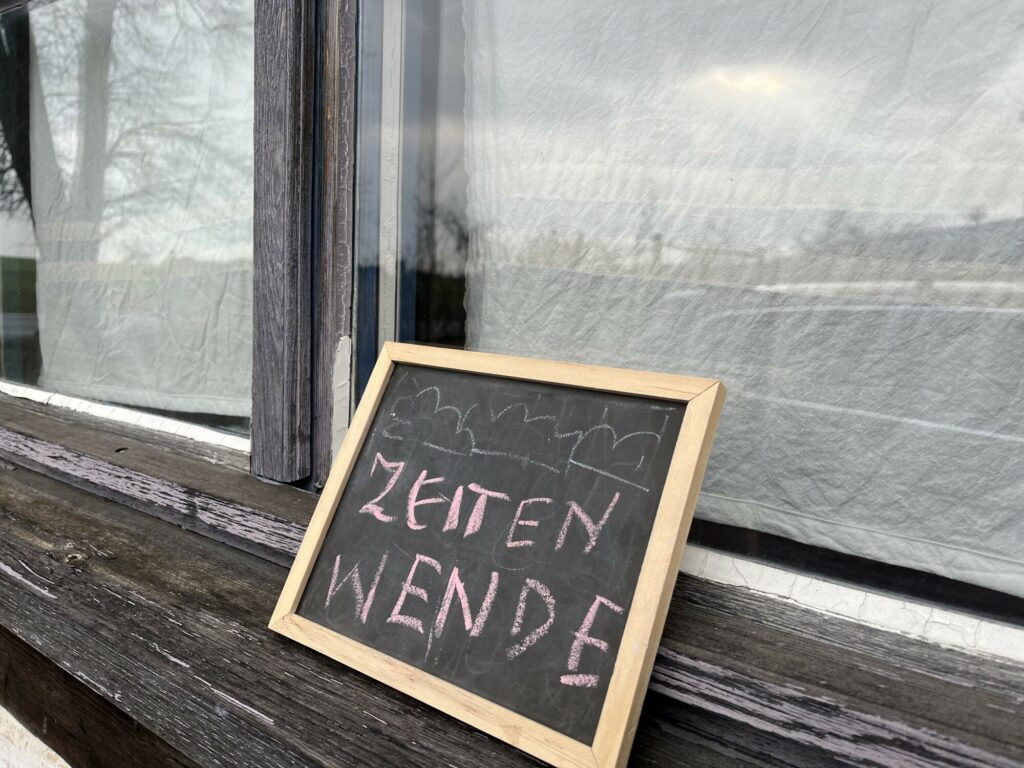 ZEITEN
WENDE